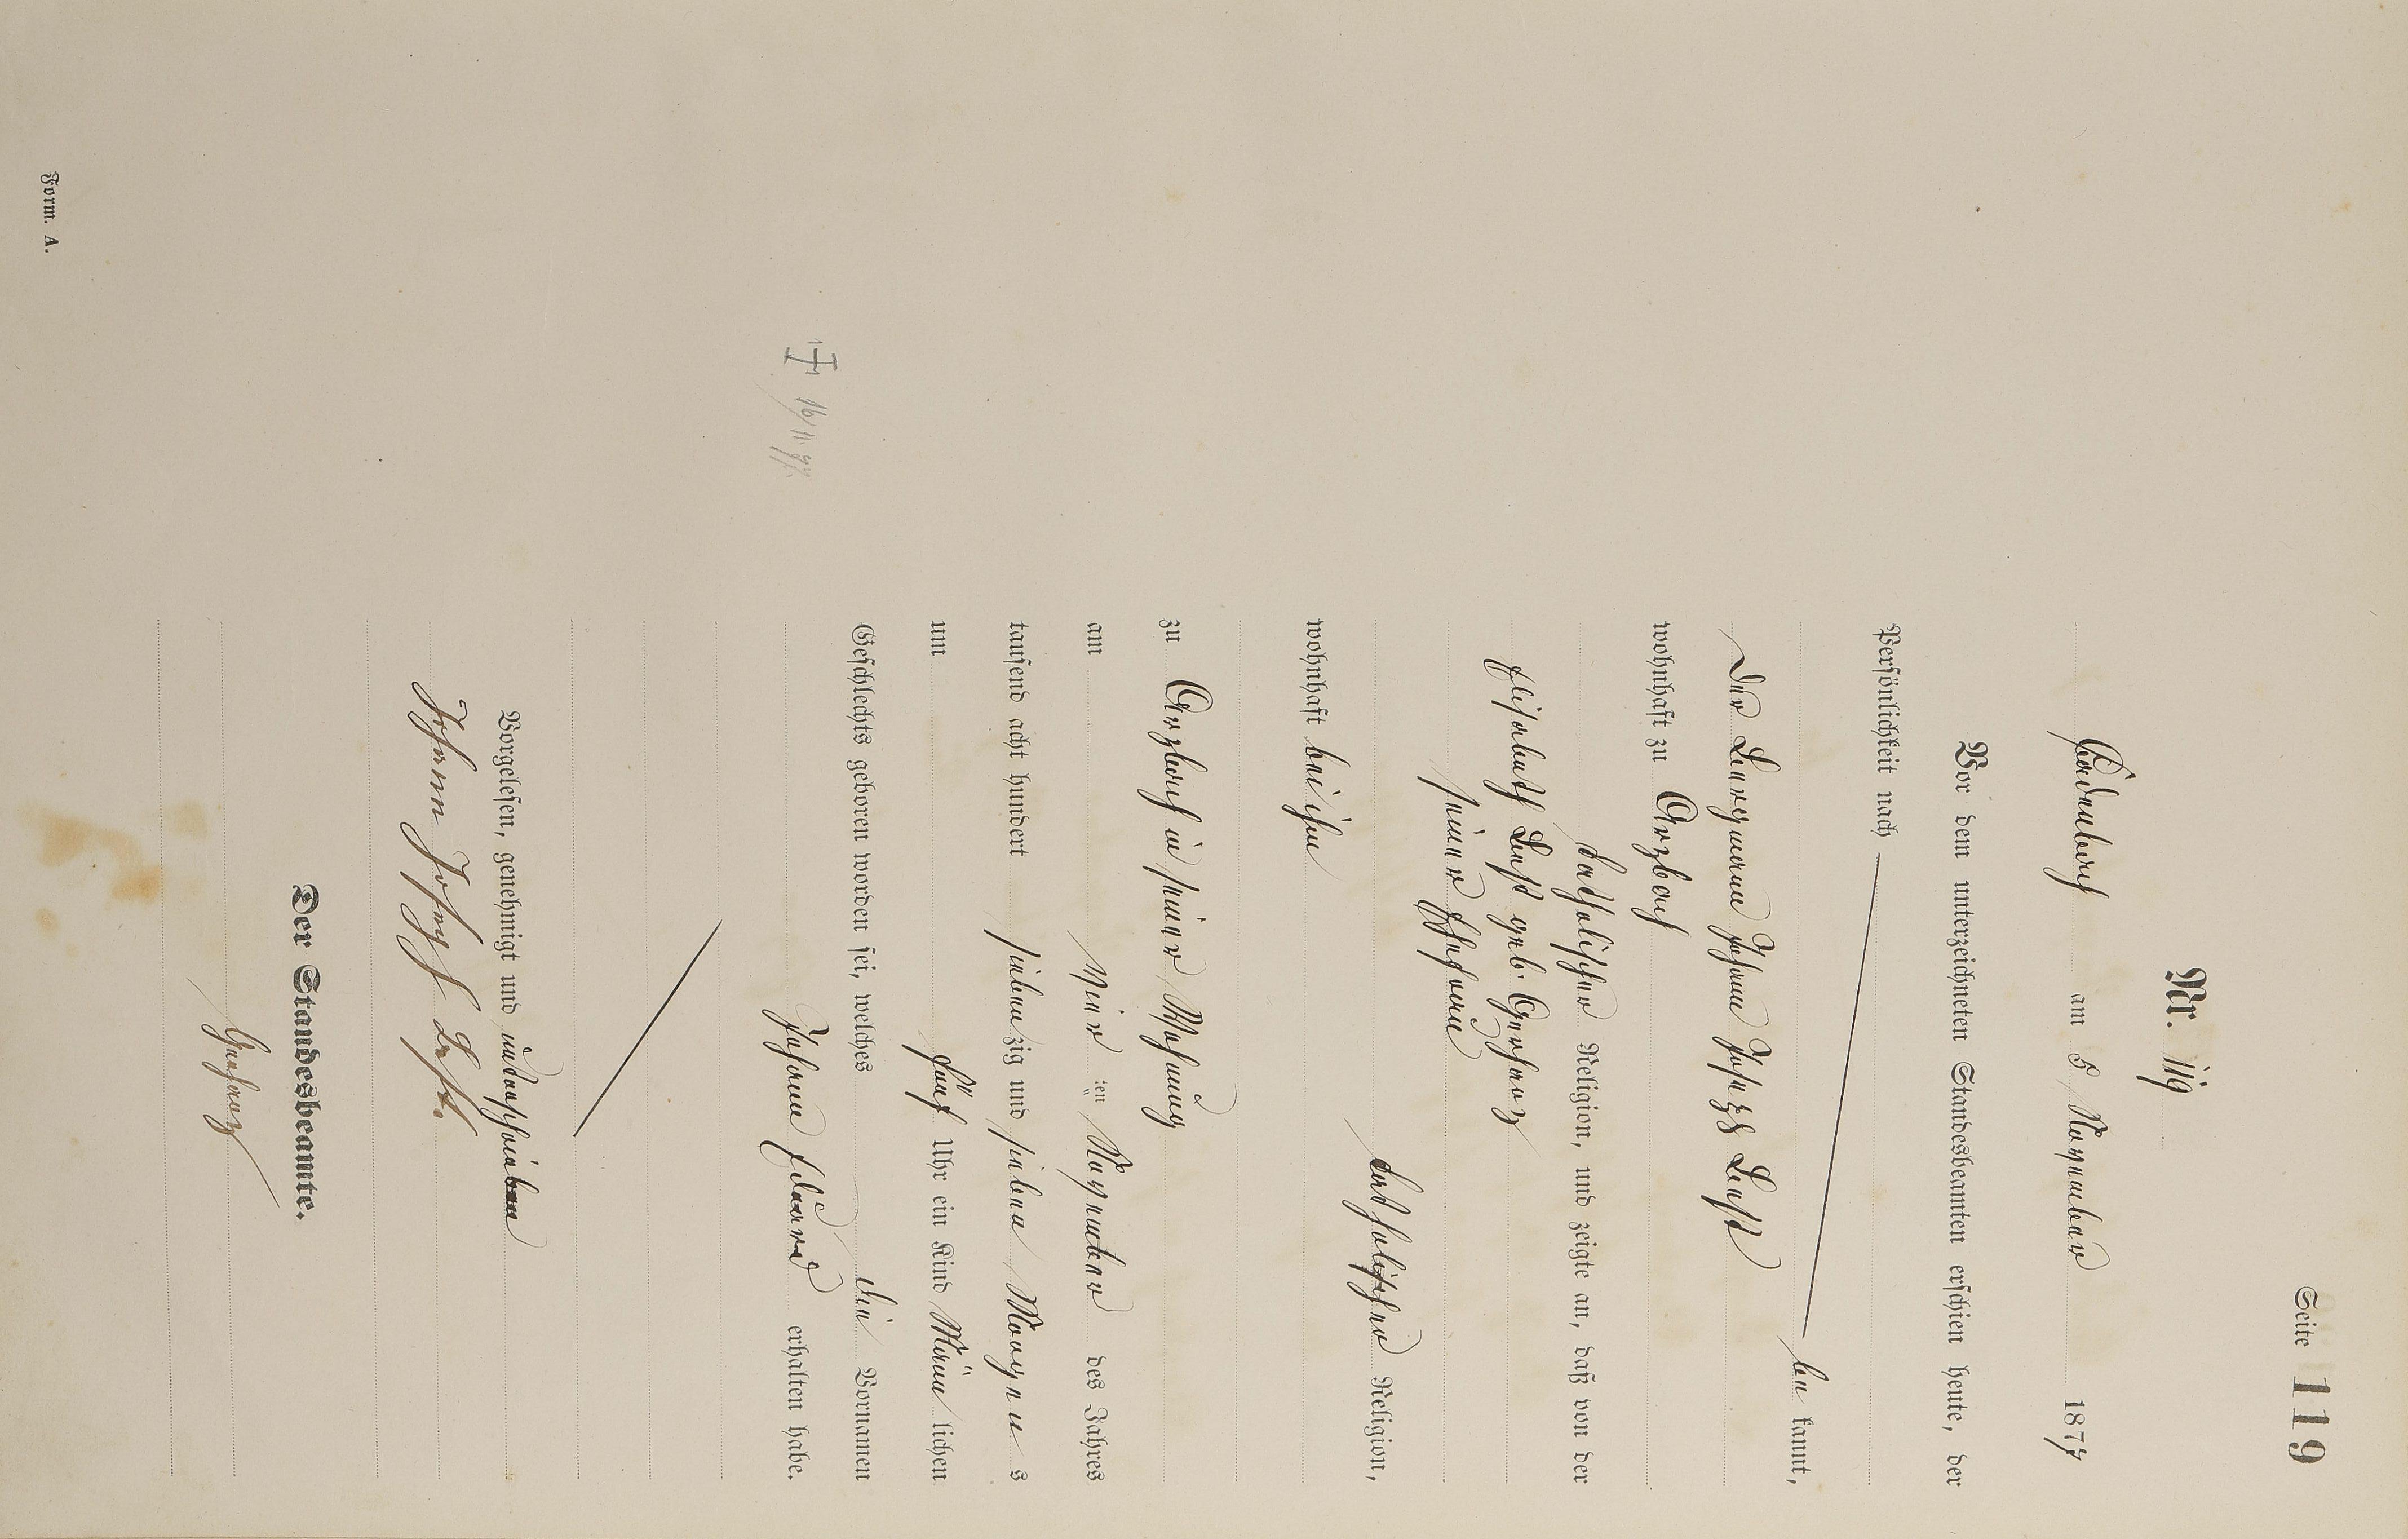 Seite 119
Nr. 119
Cadenbach am 5 November 1877
Vor dem unterzeichneten Standesbeamten erschien heute, der
Persönlichkeit nach
be kannt,
der Bergmann Johann Joseph Best
wohnhaft zu Arzbach
katholischer Religion, und zeigte an, daß von der
Elisabeth Best geb. Gerharz
seiner Ehefrau
katholischer Religion,
wohnhaft bei ihm
zu Arzbach in seiner Wohnung
am vier ten November des Jahres
tausend acht hundert siebenzig und sieben Morgens
um fünf Uhr ein Kind männlichen
Geschlechts geboren worden sei, welches die Vornamen
Johann Eduard erhalten habe.
† 16/11 97.
Vorgelesen, genehmigt und unterschrieben
Johann Joseph Best.
Der Standesbeamte.
Gerharz
Form. A.